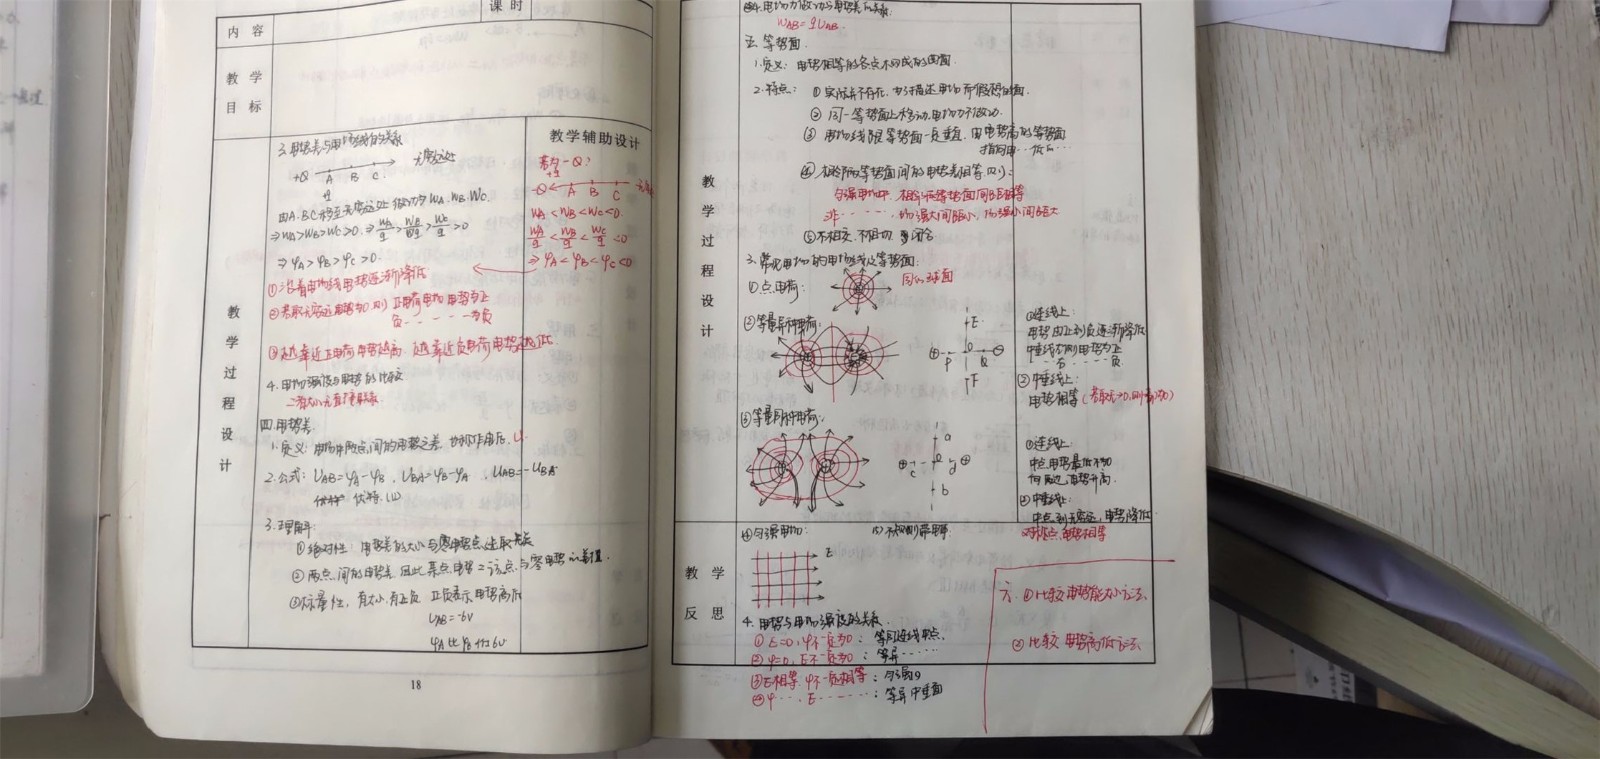 课时
内容
教学
目标
教学过程设计
教学辅助设计
3.电势差与电场线的关系
+Q A B C 无穷远处
+q
由A.B.C移至无穷远处 做功为WA.WB.WC.
⇒WA>WB>WC>0.⇒WA/q>WB/q>WC/q>0
⇒φA>φB>φC>0.
①沿着电场线电势逐渐降低
②若取无穷远电势为0.则 正电荷电场 电势为正
负-----为负
③越靠近正电荷电势越高.越靠近负电荷电势越低.
若为-Q?
+q
-Q A B C
WA<WB<WC<0.
WA/q<WB/q<WC/q<0
⇒φA<φB<φC<0
4.电场强度与电势的比较
二者大小无直接联系.
四.电势差
1.定义:电场中两点间的电势之差.也称作电压.U.
2.公式:UAB=φA-φB.UBA=φB-φA.UAB=-UBA
伏特.(V)
3.理解:
①绝对性:电势差的大小与零电势点选取无关
②两点间的电势差.因此某点电势=该点与零电势的差值.
③标量性,有大小.有正负.正负表示电势高低
UAB=-6V
φA比φB低6V
18
4.电场力做功与电势差的关系:
WAB=qUAB.
五.等势面.
1.定义:电势相等的各点构成的曲面.
2.特点:①实际并不存在.为了描述电场而假想的面.
②同一等势面上移动.电场力不做功.
③电场线跟等势面一定垂直.由电势高的等势面
指向电··低的···
④相邻两等势面间的电势差相等.则:
匀强电场中.相邻等势面间距相等
非·····.场强大间距小.场强小间距大
⑤不相交.不相切.
教学过程设计
3.常见电场的电场线及等势面:
①点电荷: 同心球面
②等量异种电荷:
E
⊕ P O Q ⊖
F
①连线上:
电势由正到负逐渐降低
中垂线左侧电势为正
··右····负.
②中垂线上:
电势相等
③等量同种电荷:
a
⊕ c O d ⊕
b
①连线上:
中点电势最低不为0
向两边.电势升高.
②中垂线上:
中点到无穷远,电势降低.
对称点.电势相等
教学
反思
④匀强电场:
E
4.电势与电场强度的关系.
①E=0,φ不一定为0:等同连线中点.
②φ=0,E不一定为0:等异······
③E相等.φ不一定相等:匀强
④φ···.E·······:等异中垂面
六.①比较电势能大小方法.
②比较电势高低方法.